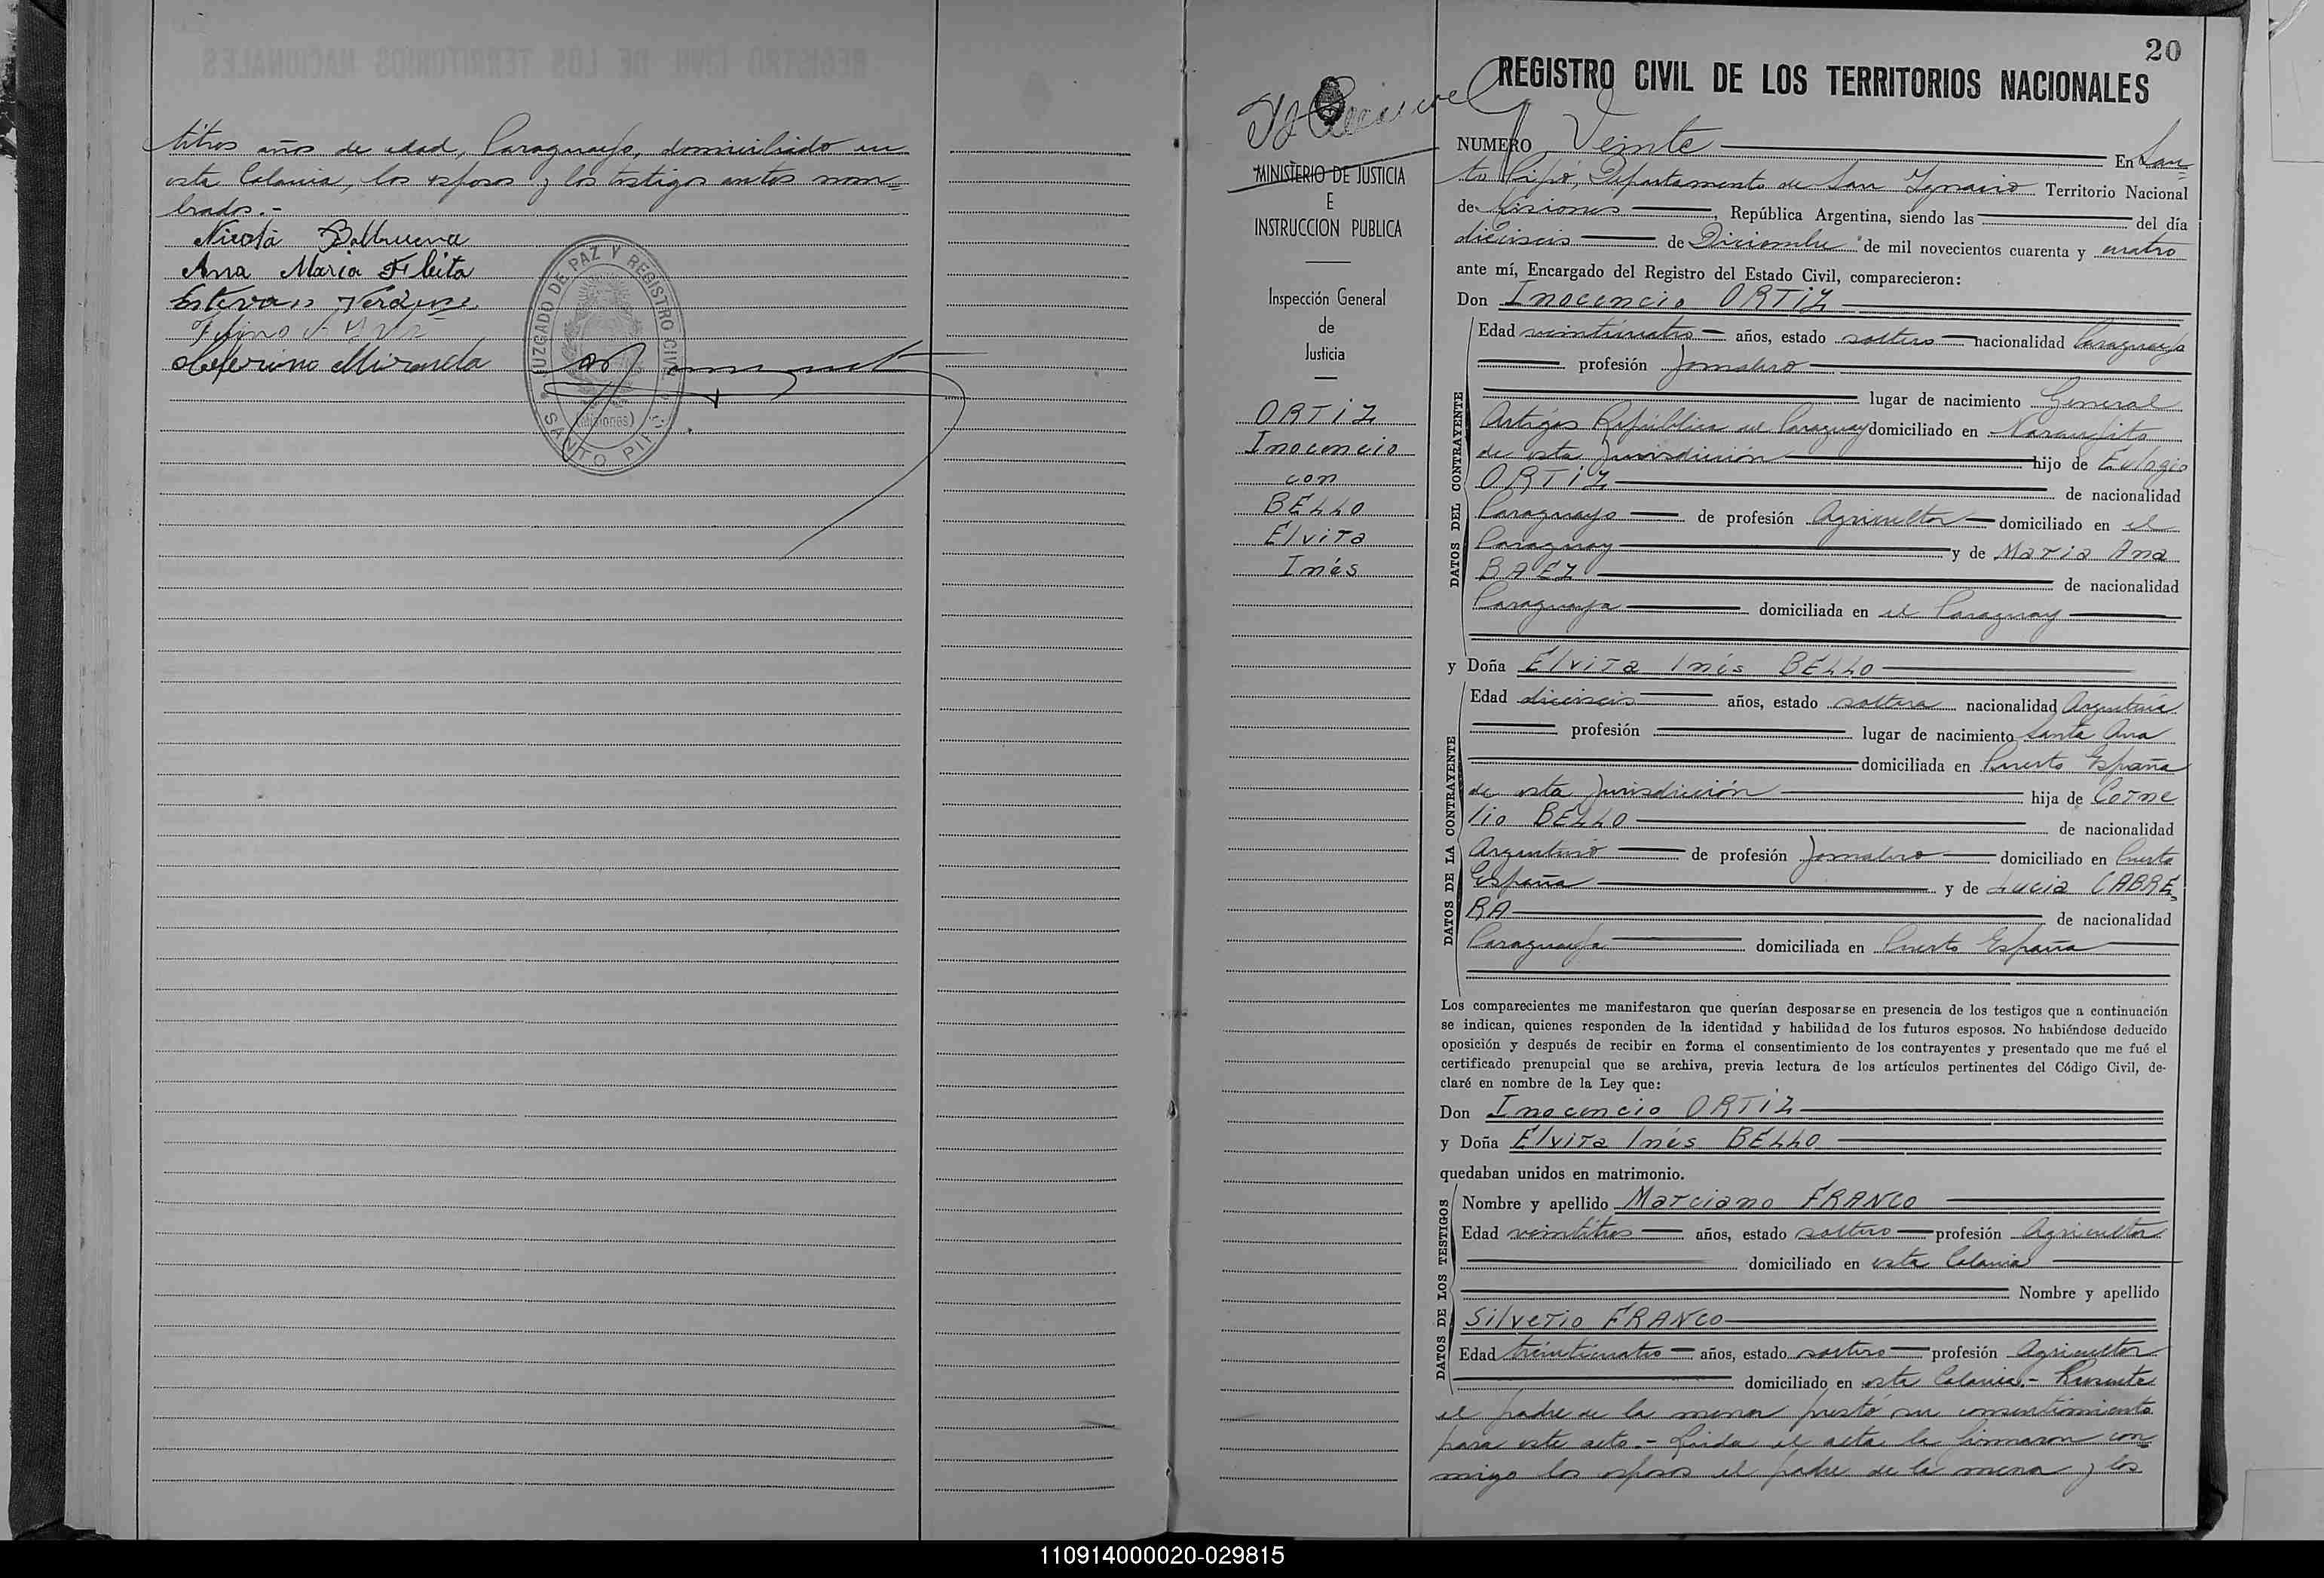 titres años de edad, Paraguayo, domiciliado en
esta Colonia, los esposos y los testigos antes nom=
brados.-
Nicolá Balbuena
Ana Maria Fleita
Estevan
Ceferino Miranda
JUZGADO DE PAZ Y REGISTRO CIVIL
(Misiones)
SANTO PIPÓ
20
REGISTRO CIVIL DE LOS TERRITORIOS NACIONALES
MINISTERIO DE JUSTICIA
E
INSTRUCCION PUBLICA
Inspección General
de
Justicia
ORTIZ
Inocencio
con
BELLO
Elvira
Inés
NUMERO Veinte En San=
to Pipó, Departamento de San Ignacio Territorio Nacional
de Misiones, República Argentina, siendo las del día
dieciseis de Diciembre de mil novecientos cuarenta y cuatro
ante mí, Encargado del Registro del Estado Civil, comparecieron:
Don Inocencio ORTIZ
DATOS DEL CONTRAYENTE
Edad veinticuatro años, estado soltero nacionalidad Paraguaya
profesión Jornalero
lugar de nacimiento General
Artigas República del Paraguay domiciliado en Naranjito
de esta Jurisdicción hijo de Eulogio
ORTIZ de nacionalidad
Paraguayo de profesión Agricultor domiciliado en el
Paraguay y de Maria Ana
BAEZ de nacionalidad
Paraguaya domiciliada en el Paraguay
y Doña Elvira Inés BELLO
DATOS DE LA CONTRAYENTE
Edad dieciseis años, estado soltera nacionalidad Argentina
profesión lugar de nacimiento Santa Ana
domiciliada en Puerto España
de esta Jurisdicción hija de Corne
lio BELLO de nacionalidad
Argentino de profesión Jornalero domiciliado en Puerto
España y de Lucia CABRE
RA de nacionalidad
Paraguaya domiciliada en Puerto España
Los comparecientes me manifestaron que querían desposarse en presencia de los testigos que a continuación
se indican, quienes responden de la identidad y habilidad de los futuros esposos. No habiéndose deducido
oposición y después de recibir en forma el consentimiento de los contrayentes y presentado que me fué el
certificado prenupcial que se archiva, previa lectura de los artículos pertinentes del Código Civil, de-
claré en nombre de la Ley que:
Don Inocencio ORTIZ
y Doña Elvira Inés BELLO
quedaban unidos en matrimonio.
DATOS DE LOS TESTIGOS
Nombre y apellido Marciano FRANCO
Edad veintitres años, estado soltero profesión Agricultor
domiciliado en esta Colonia
Nombre y apellido
Silverio FRANCO
Edad treinticuatro años, estado soltero profesión Agricultor
domiciliado en esta Colonia.- Presente
el padre de la menor prestó su consentimiento
para este acto.- Leida el acta la firmaron con=
migo los esposos el padre de la menor y los
110914000020-029815